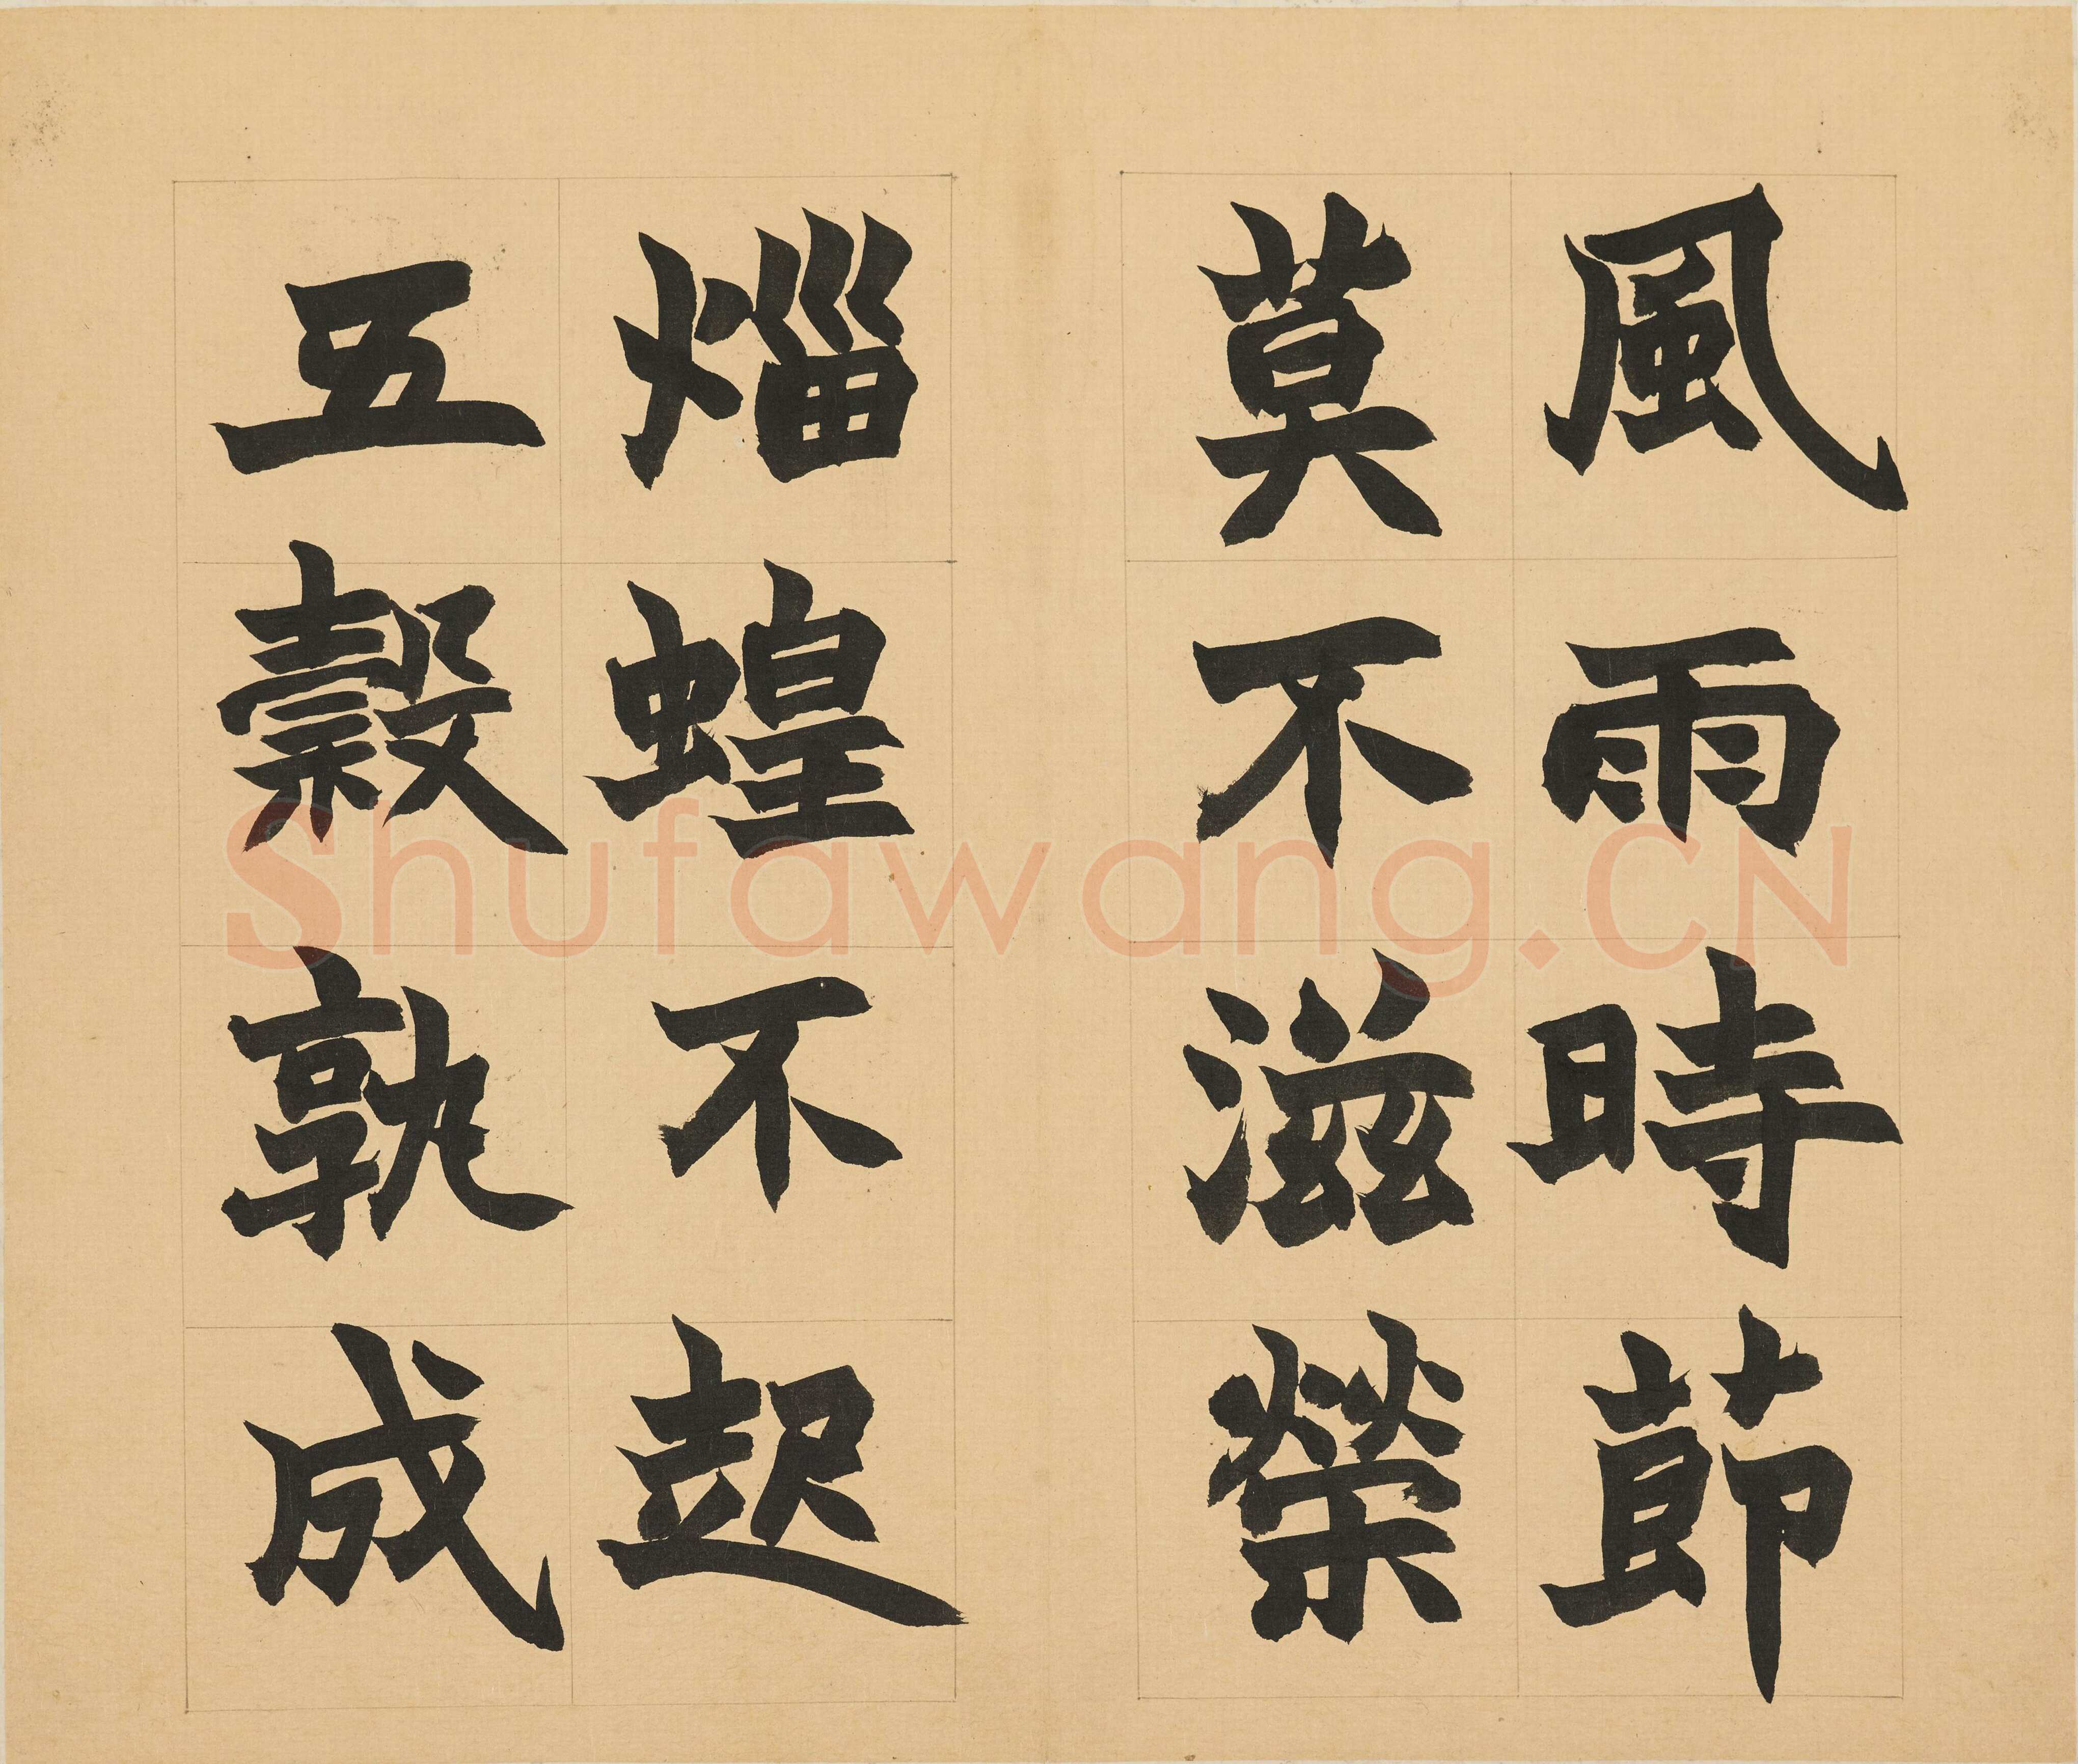 風雨時莭
莫不滋榮
蝗不起
五穀孰成
Shufawang.CN